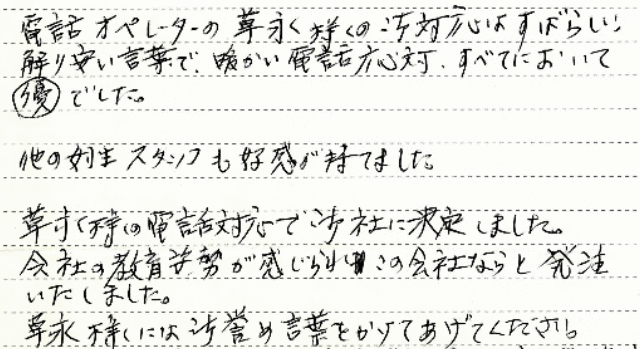 電話オペレーターの草永様の御対応はすばらしい
解り安い言葉で、暖かい電話応対、すべてにおいて
優でした。
他の女性スタッフも好感が持てました
草永様の電話対応で御社に決定しました。
会社の教育姿勢が感じられ この会社ならと発注
いたしました。
草永様には御誉め言葉をかけてあげてください。